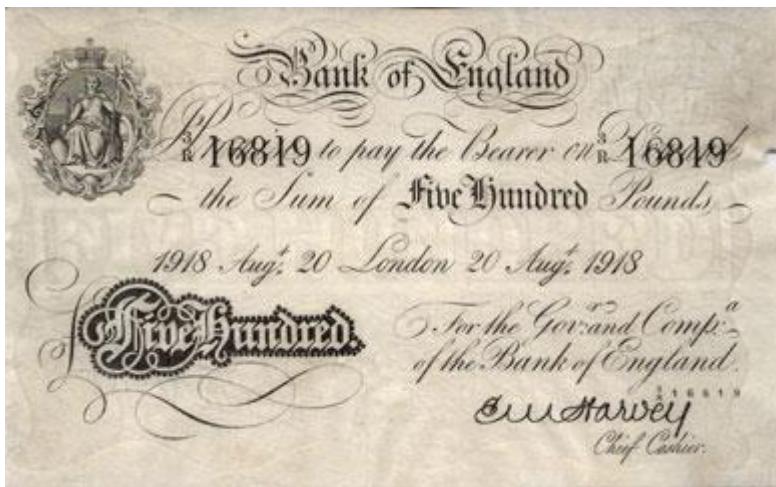 Bank of England
I Promise to pay the Bearer on Demand
3/R 16819 3/R 16819
the Sum of Five Hundred Pounds
1918 Augt. 20 London 20 Augt. 1918
£ Five Hundred.
For the Govr. and Compa.
of the Bank of England.
3/R 16819
E M Harvey
Chief Cashier.